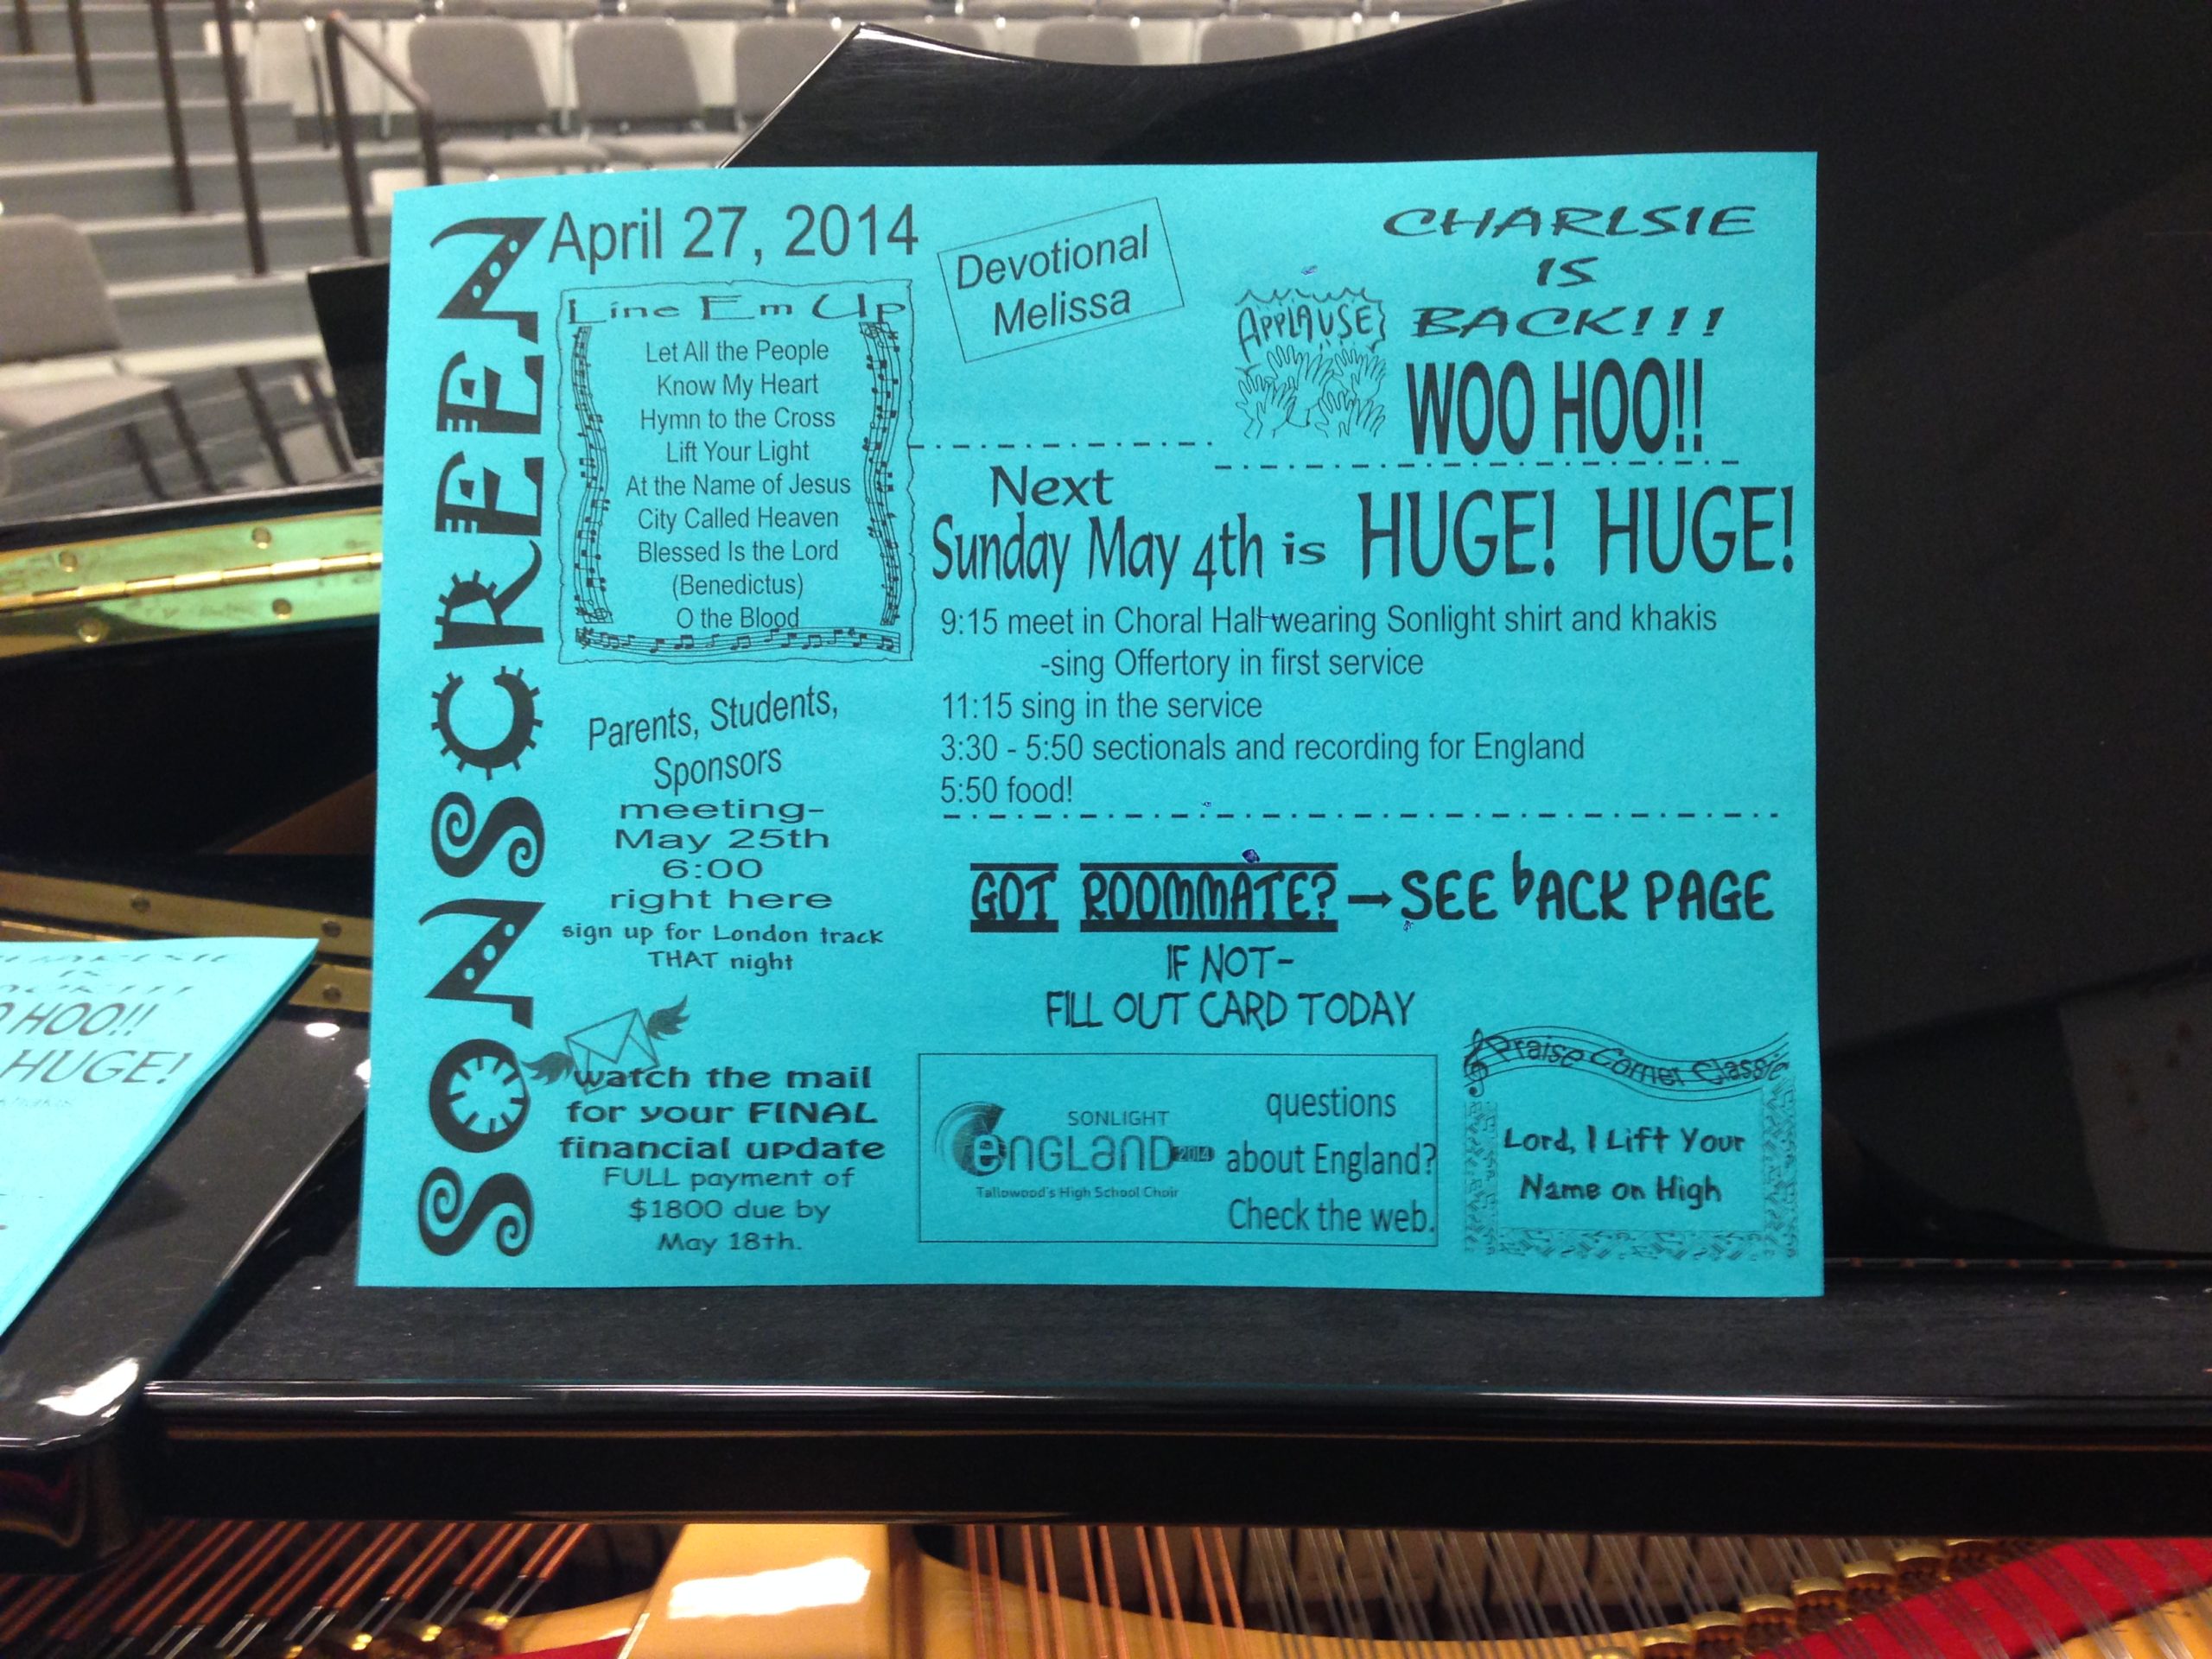 SONSCREEN
April 27, 2014
Line Em Up
Let All the People
Know My Heart
Hymn to the Cross
Lift Your Light
At the Name of Jesus
City Called Heaven
Blessed Is the Lord
(Benedictus)
O the Blood
Parents, Students,
Sponsors
meeting-
May 25th
6:00
right here
sign up for London track
THAT night
watch the mail
for your FINAL
financial update
FULL payment of
$1800 due by
May 18th.
Devotional
Melissa
APPLAUSE
CHARLSIE
IS
BACK!!!
WOO HOO!!
Next
Sunday May 4th is HUGE! HUGE!
9:15 meet in Choral Hall-wearing Sonlight shirt and khakis
-sing Offertory in first service
11:15 sing in the service
3:30 - 5:50 sectionals and recording for England
5:50 food!
GOT ROOMMATE?→SEE bACK PAGE
IF NOT-
FILL OUT CARD TODAY
SONLIGHT
eNGLaND 2014
Tallowood's High School Choir
questions
about England?
Check the web.
Praise Corner Classic
Lord, I Lift Your
Name on High
HOO!!
HUGE!